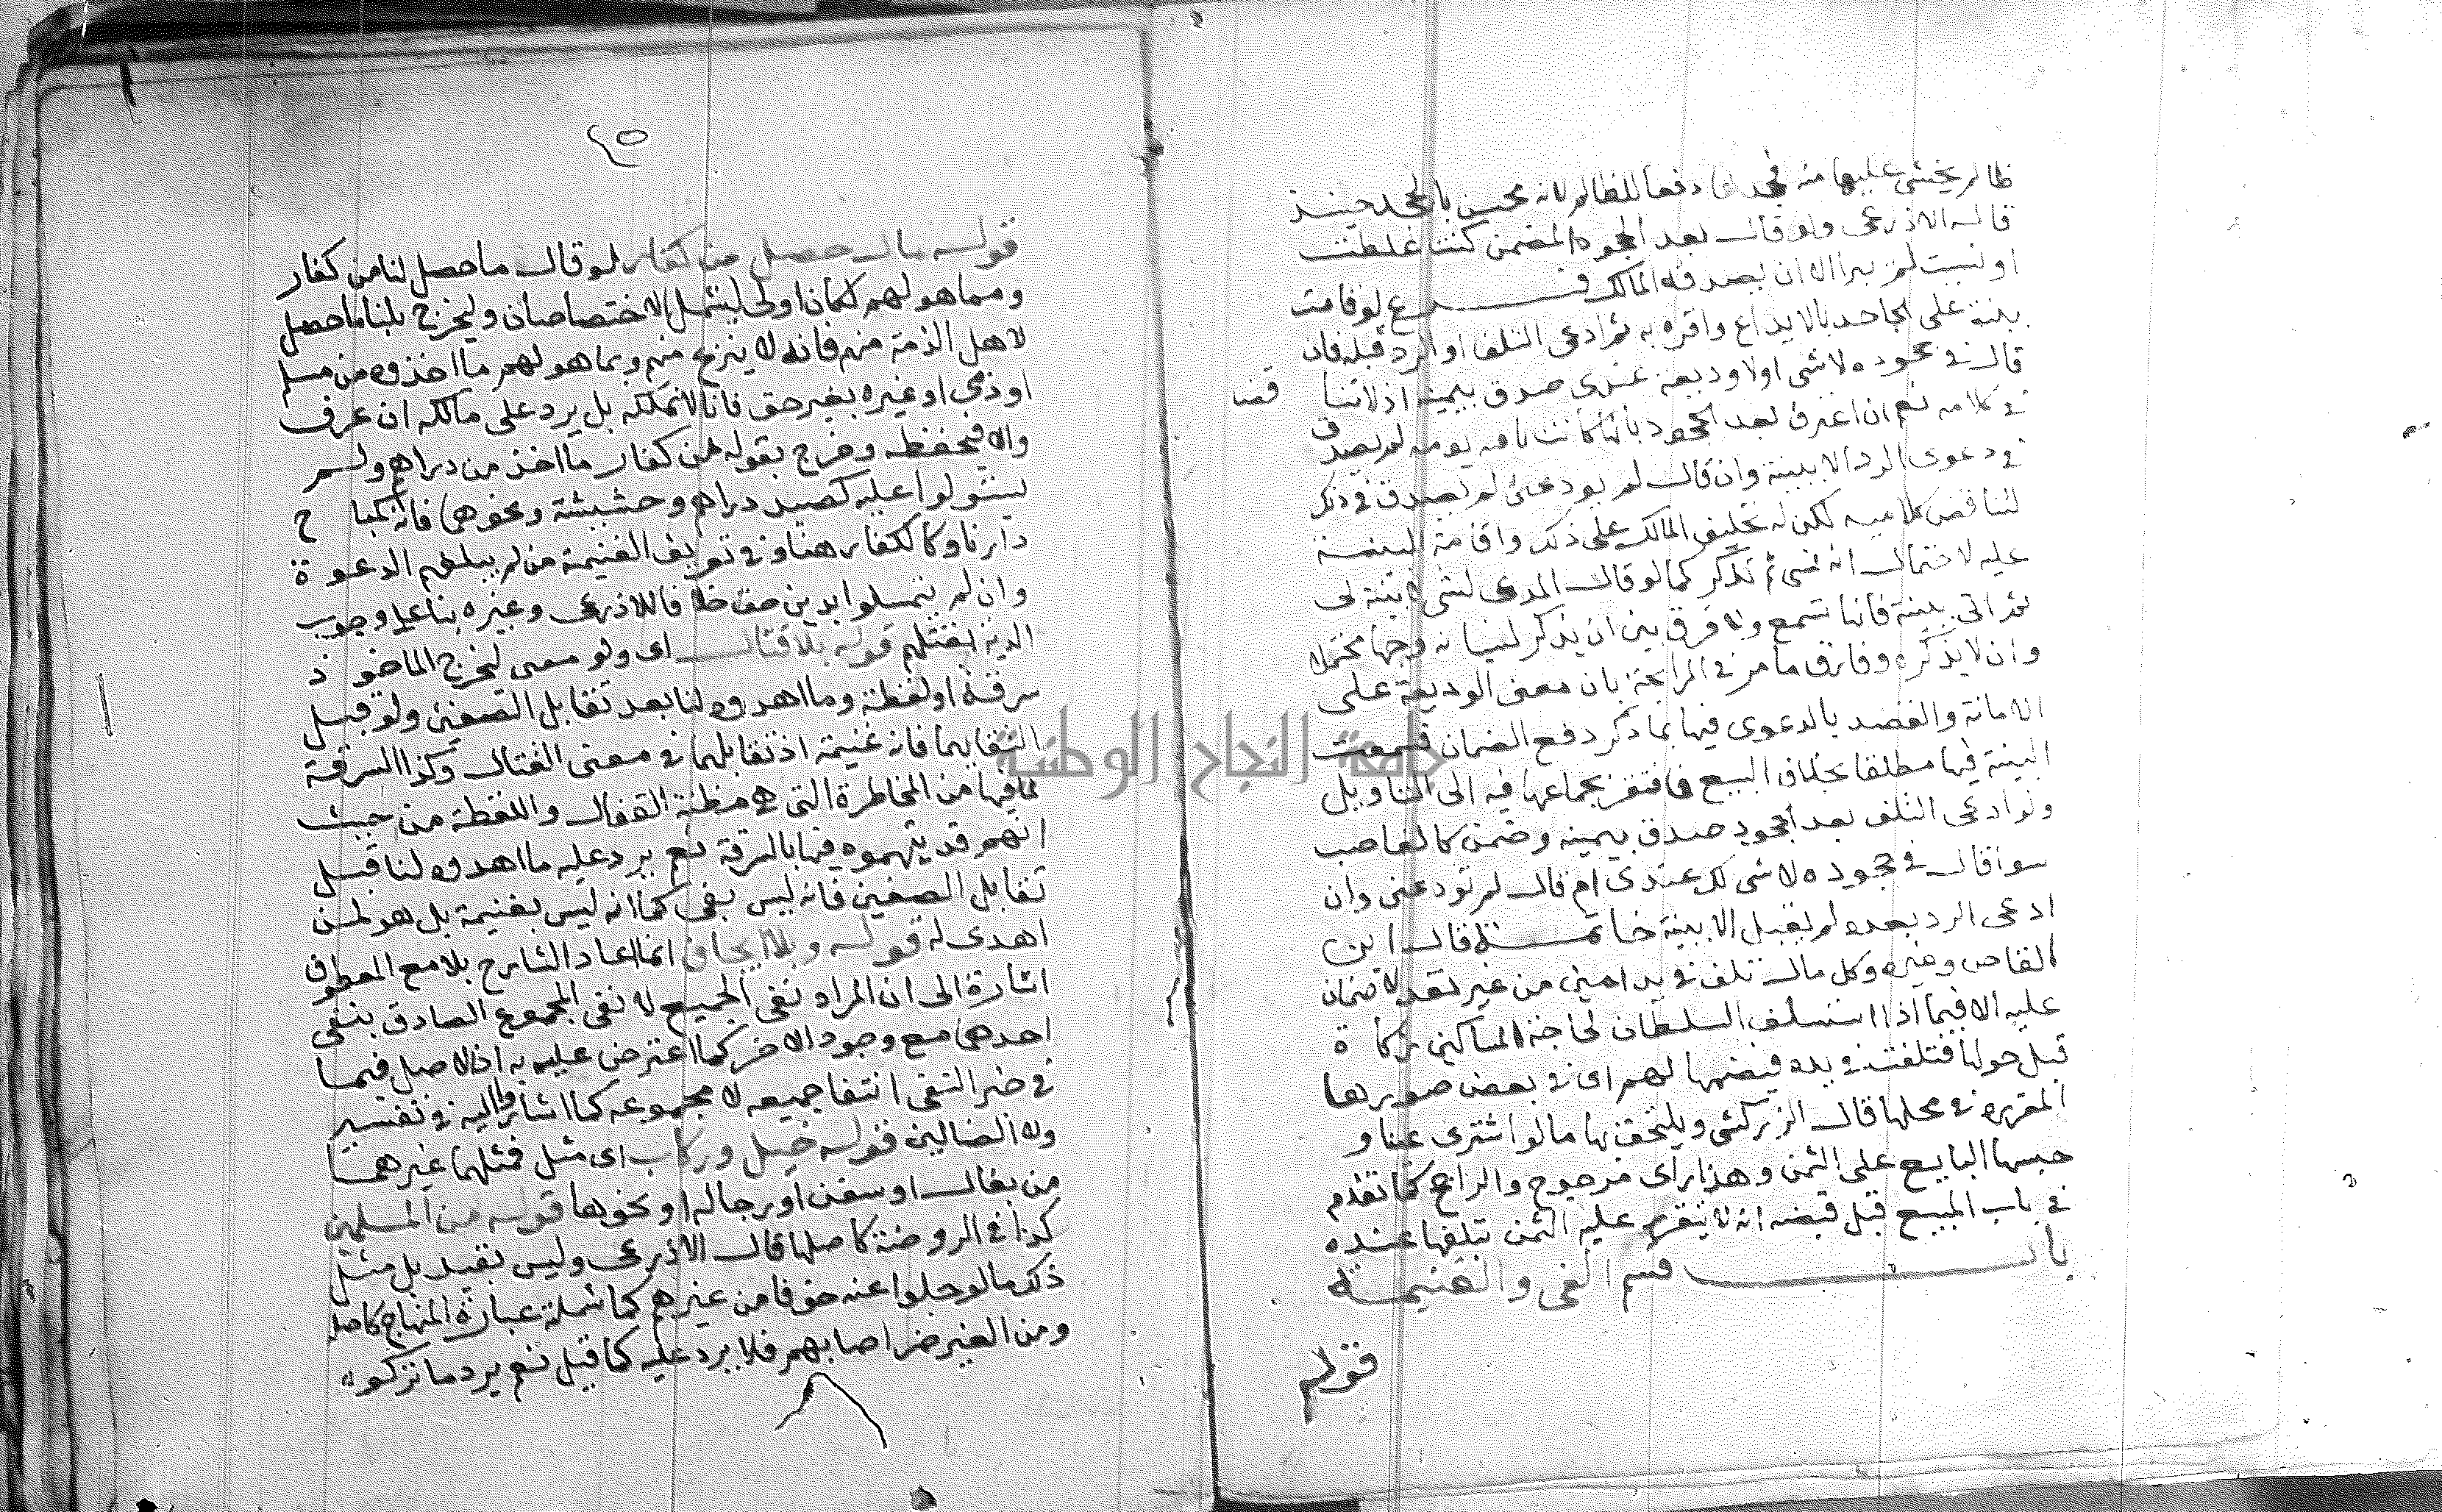 ظالم يخشى عليها منه فجحدها دفعا للظالم لانه محسن بالجحد حينئذ
قاله الاذرعى ولو قال بعد الجحود المضمن كنت غلطت
او نسيت لم يبرا الا ان يصدقه المالك فرع لو قامت
بينة على الجاحد بالايداع واقر به ثم ادعى التلف او الرد قبله فان
قال فى جحوده لاشى او لا وديعة عندى صدق بيمينه اذ لا تنا قض
فى كلامه نعم ان اعترف بعد الجحود بانها كانت باقيه يومه لم يصدق
فى دعوى الرد الا ببينة وان قال لم يودعنى لم يصدق فى ذلك
لتناقض كلاميه لكن له تحليف المالك على ذلك واقامة البينة
عليه لاحتمال انه نسى ثم تذكر كما لو قال المدعى لشى لا بينة لى
ثم اتى ببينة فانها تسمع ولا فرق بين ان يذكر لنسيانه وجها محتملا
وان لا يذكره وفارق ما مر فى المرابحة بان معنى الوديعة على
الامانة والقصد بالدعوى فيها بما ذكر دفع الضمان فسمعت
البينة فيها مطلقا بخلاف البيع فافتقر سماعها فيه الى التاويل
ولو ادعى التلف بعد الجحود صدق بيمينه وضمن كالغاصب
سوا قال فى جحوده لاشى لك عندى ام قال لم تودعنى وان
ادعى الرد بعده لم يقبل الا ببينة خاتمة قال ابن
القاص وغيره وكل مال تلف فى يد امين من غير تعد لا ضمان
عليه الا فيما اذا استسلف السلطان لحاجة المساكين زكاة
قبل حولها فتلفت فى يده فيضمنها لهم اى فى بعض صورها
المقرره فى محلها قال الزركشى ويلتحق بها ما لو اشترى عينا و
حبسها البايع على الثمن وهذا راى مرجوح والراجح كما تقدم
فى باب المبيع قبل قبضه انه لا يتقرر عليه الثمن بتلفها عنده
باب قسم الفى والغنيمة
قوله
قوله مال حصل من كفار لو قال ما حصل لنا من كفار
ومما هو لهم لكان اولى ليشمل الاختصاصات وليخرج بلنا ما حصل
لاهل الذمة منهم فانه لا ينزع منهم وبما هو لهم ما اخذوه من مسلم
او ذمى او غيره بغير حق فانا لا نملكه بل يرد على مالكه ان عرف
والا فيحفظ وخرج بقوله من كفار ما اخذ من دراهم ولم
يستولوا عليه كصيد دراهم وحشيشة ونحوهما فانه كمباح
دارنا وكالكفار هنا وفى تعريف الغنيمة من لم يبلغهم الدعوة
وان لم يتمسلوا بدين حق خلافا للاذرعى وغيره بنا على وجوب
الدية بقتلهم قوله بلا قتال اى ولو معنى ليخرج الماخوذ
سرقة او لقطة وما اهدوه لنا بعد تقابل الصفين ولو قبل
التقابهما فانه غنيمة اذ تقابلهما فى معنى القتال وكذا السرقة
لما فيها من المخاطرة التى هى مظنة القتال واللقطة من حيث
انهم قد يتهموه فيها بالسرقة نعم يرد عليه ما اهدوه لنا قبل
تقابل الصفين فانه ليس بفى كما انه ليس بغنيمة بل هو لمن
اهدى له قوله وبلا ايجاف انما اعاد الشارح بلا مع المعطوف
اشارة الى ان المراد نفى الجميع لا نفى المجموع الصادق بنفى
احدهما مع وجود الاخر كما اعترض عليه به اذ الاصل فيما
فى خبر النفى انتفا جميعه لا مجموعه كما اشاروا اليه فى تفسير
ولا الضالين قوله خيل وركاب اى مثل فمثلهما غيرهما
من بغال او سفن او رجاله او نحوها قوله من المسلمين
كذا فى الروضة كاصلها قال الاذرعى وليس بقيد بل مثل
ذلك ما لو جلوا عنه خوفا من غيرهم كما شملته عبارة المنهاج كاصله
ومن الغير ضر اصابهم فلا يرد عليه كما قيل نعم يرد ما تركوه
جامعة النجاح الوطنية